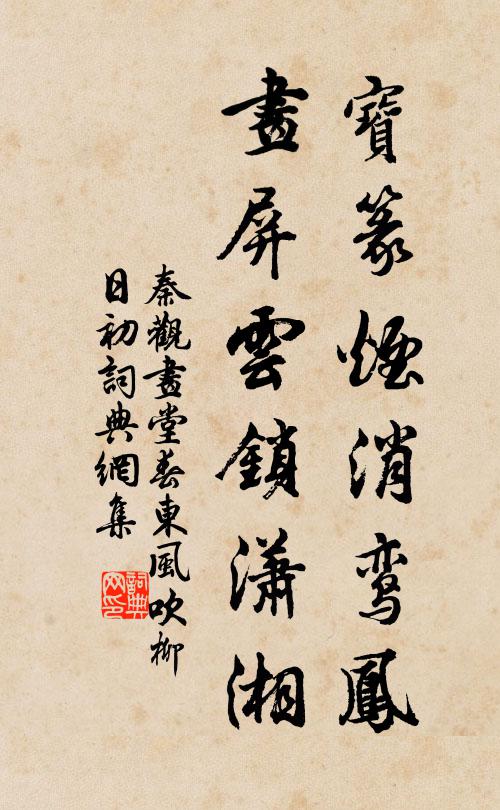 寶篆煙消鸾鳳
畫屏雲鎖瀟湘
秦觀畫堂春東風吹柳
日初詞典網集
詞典网印